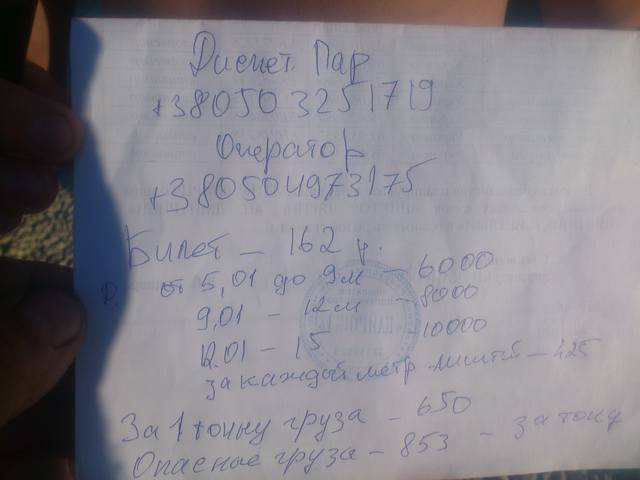 Диспет. Пар
+380503251719
Оператор
+380504973175
Билет – 162 у.
от 5,01 до 9м – 6000
9,01 – 12м – 8000
12.01 – 15 – 10000
за каждый метр – 425
За 1 тонну груза – 650
Опасные груза – 853 – за тону